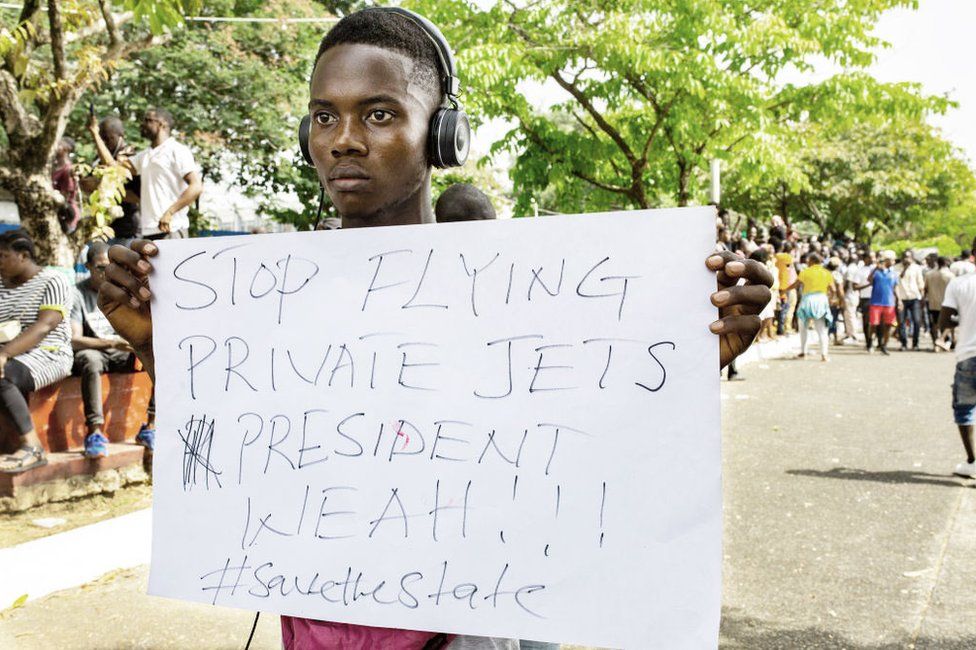 STOP FLYING
PRIVATE JETS
PRESIDENT
WEAH!!!
#savethestate